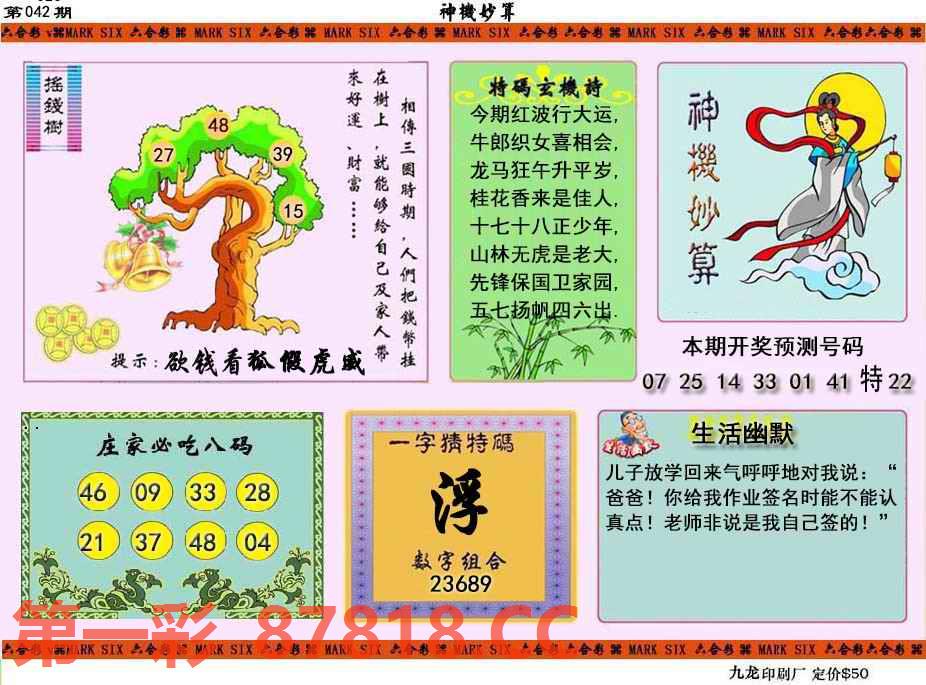 第042期
神機妙算
六合彩 MARK SIX 六合彩 MARK SIX 六合彩 MARK SIX 六合彩 MARK SIX 六合彩 六合彩 MARK SIX 六合彩 MARK SIX 六合彩 六合彩
搖錢樹
相傳三國時期，人們把錢幣挂
在樹上，就能够给自己及家人帶
來好運、財富……
48
27
39
15
提示：欲钱看狐假虎威
特碼玄機詩
今期红波行大运,
牛郎织女喜相会,
龙马狂午升平岁,
桂花香来是佳人,
十七十八正少年,
山林无虎是老大,
先锋保国卫家园,
五七扬帆四六出.
神機妙算
本期开奖预测号码
07 25 14 33 01 41 特22
庄家必吃八码
46 09 33 28
21 37 48 04
一字猜特碼
浮
数字组合
23689
生活幽默
生活幽默
儿子放学回来气呼呼地对我说：“
爸爸！你给我作业签名时能不能认
真点！老师非说是我自己签的！”
第一彩 87818.CC
六合彩 MARK SIX 六合彩 MARK SIX 六合彩 MARK SIX 六合彩 MARK SIX 六合彩 六合彩 MARK SIX 六合彩 MARK SIX 六合彩 六合彩
九龙印刷厂 定价$50